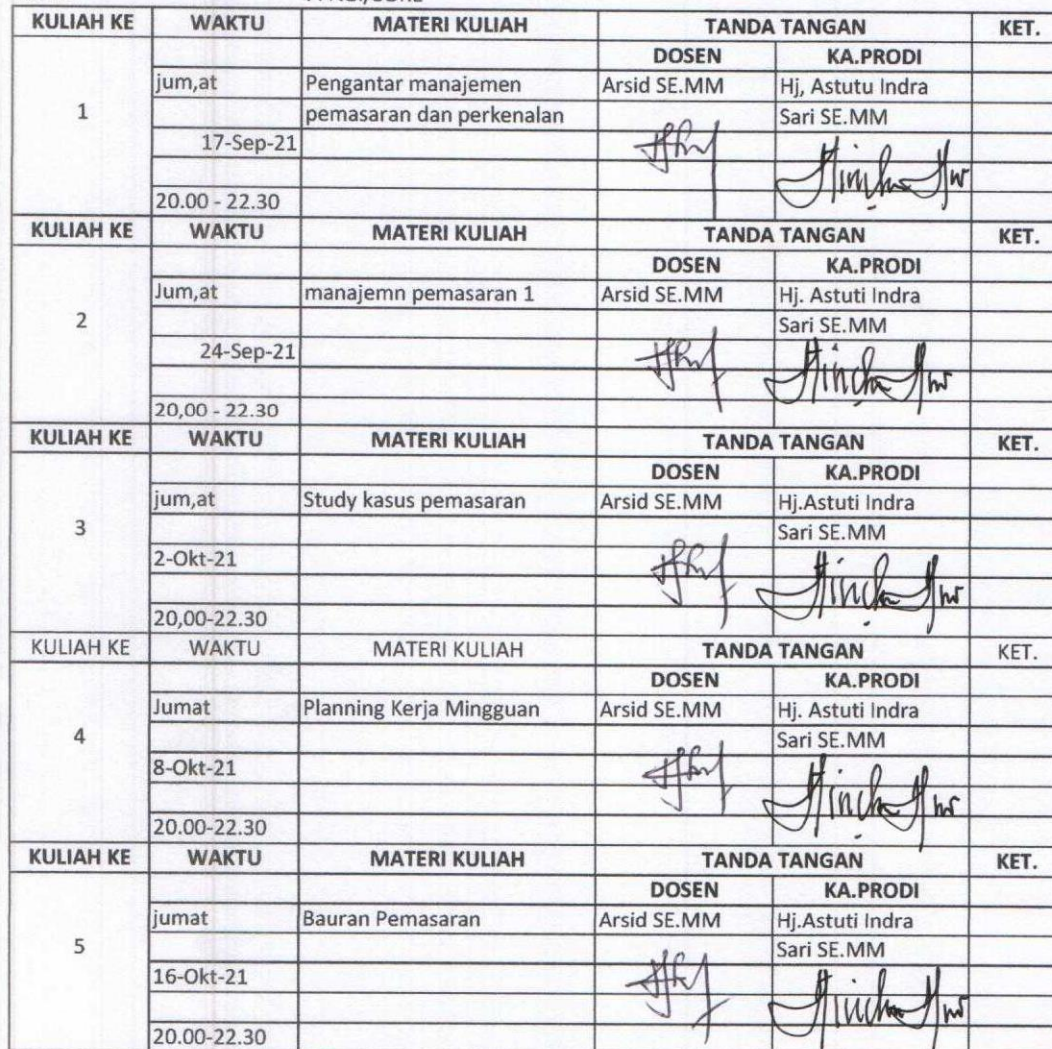 KULIAH KE WAKTU MATERI KULIAH TANDA TANGAN KET.
DOSEN KA.PRODI
jum,at Pengantar manajemen Arsid SE.MM Hj, Astutu Indra
1 pemasaran dan perkenalan Sari SE.MM
17-Sep-21
20.00 - 22.30
KULIAH KE WAKTU MATERI KULIAH TANDA TANGAN KET.
DOSEN KA.PRODI
Jum,at manajemn pemasaran 1 Arsid SE.MM Hj. Astuti Indra
2 Sari SE.MM
24-Sep-21
20,00 - 22.30
KULIAH KE WAKTU MATERI KULIAH TANDA TANGAN KET.
DOSEN KA.PRODI
jum,at Study kasus pemasaran Arsid SE.MM Hj.Astuti Indra
3 Sari SE.MM
2-Okt-21
20,00-22.30
KULIAH KE WAKTU MATERI KULIAH TANDA TANGAN KET.
DOSEN KA.PRODI
Jumat Planning Kerja Mingguan Arsid SE.MM Hj. Astuti Indra
4 Sari SE.MM
8-Okt-21
20.00-22.30
KULIAH KE WAKTU MATERI KULIAH TANDA TANGAN KET.
DOSEN KA.PRODI
jumat Bauran Pemasaran Arsid SE.MM Hj.Astuti Indra
5 Sari SE.MM
16-Okt-21
20.00-22.30